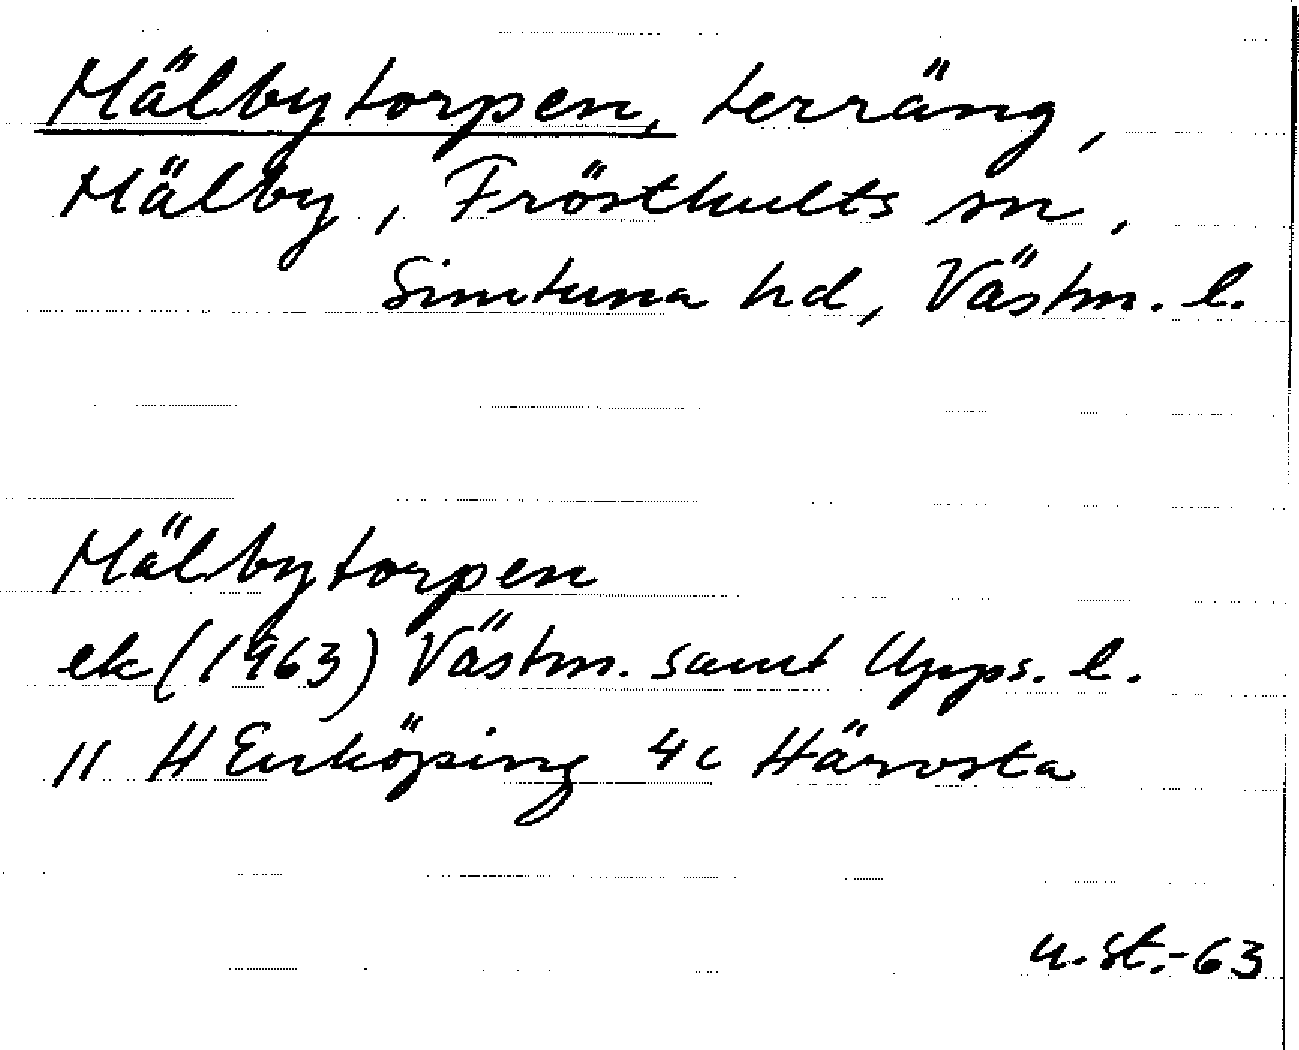 Mälbytorpen, terräng,
Mälby, Frösthults sn,
Simtuna hd, Västm. l.
Mälbytorpen
ek (1963) Västm. samt Upps. l.
11 H Enköping 4c Härvsta
u. St. -63